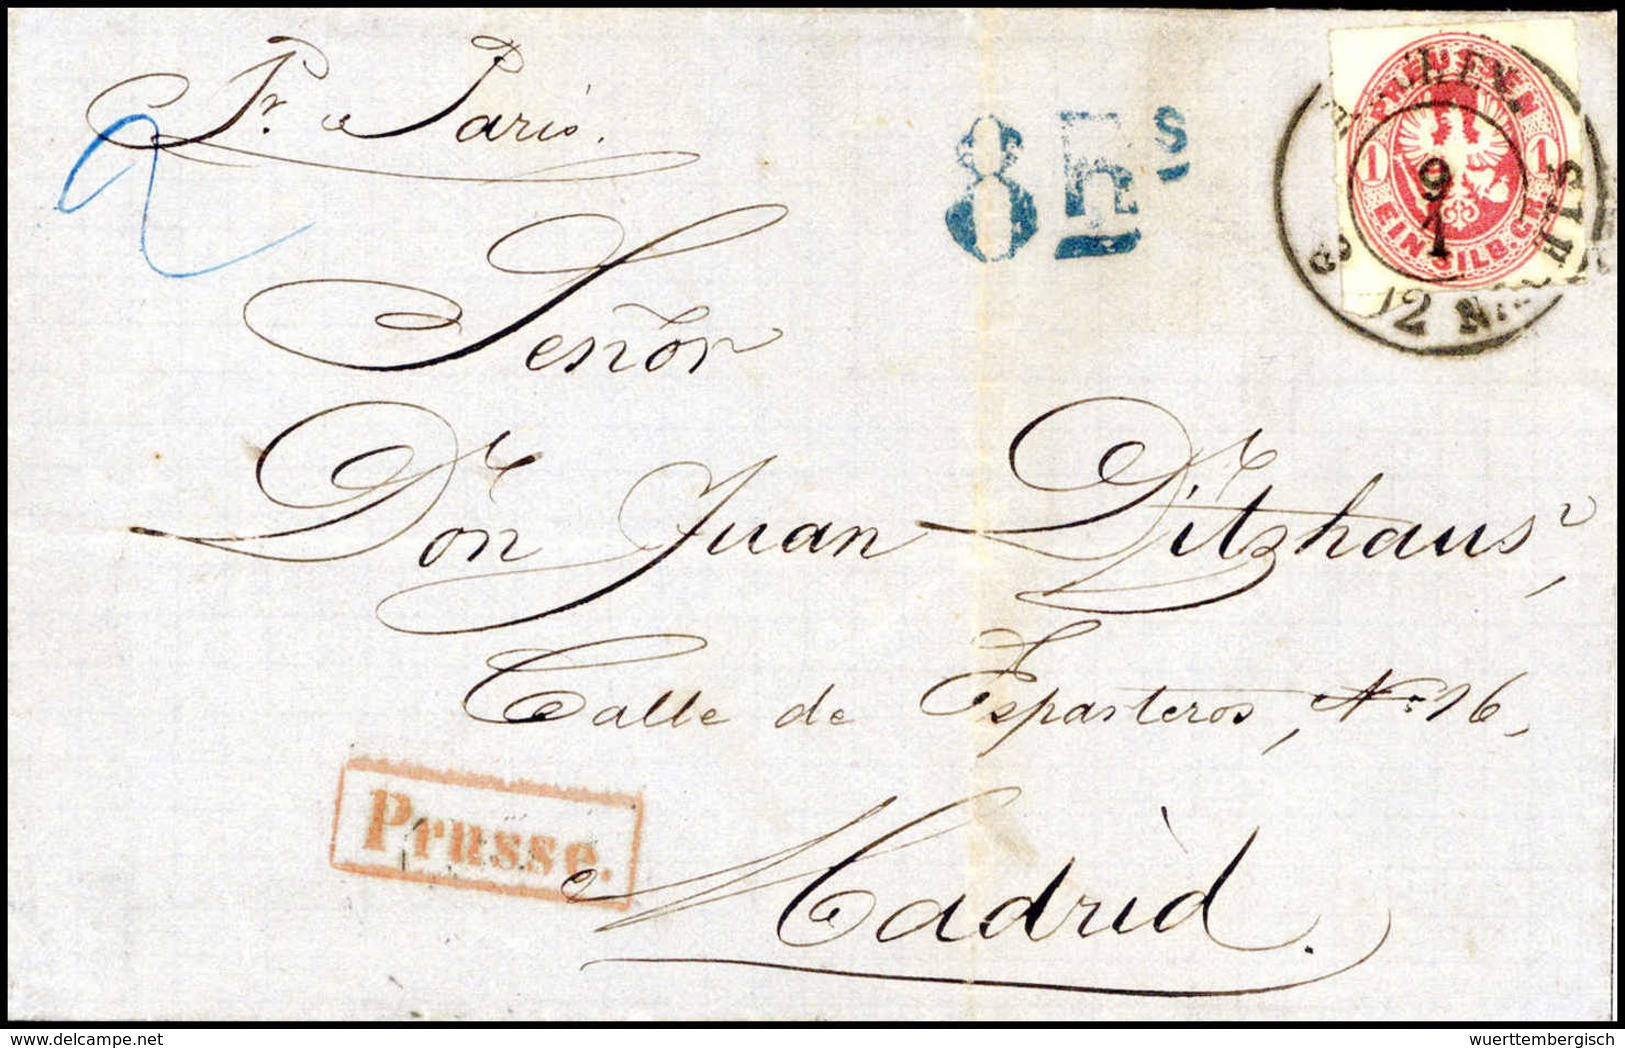 Pr. Paris.
2
8 Rs
PREUSSEN
1 1
EIN SILB. GR.
9
1
12 NACHTS
Señor
Don Juan Ditzhaus,
Calle de Esparteros, No 16,
Prusse.
Madrid.
delcampe.net
wuerttembergisch